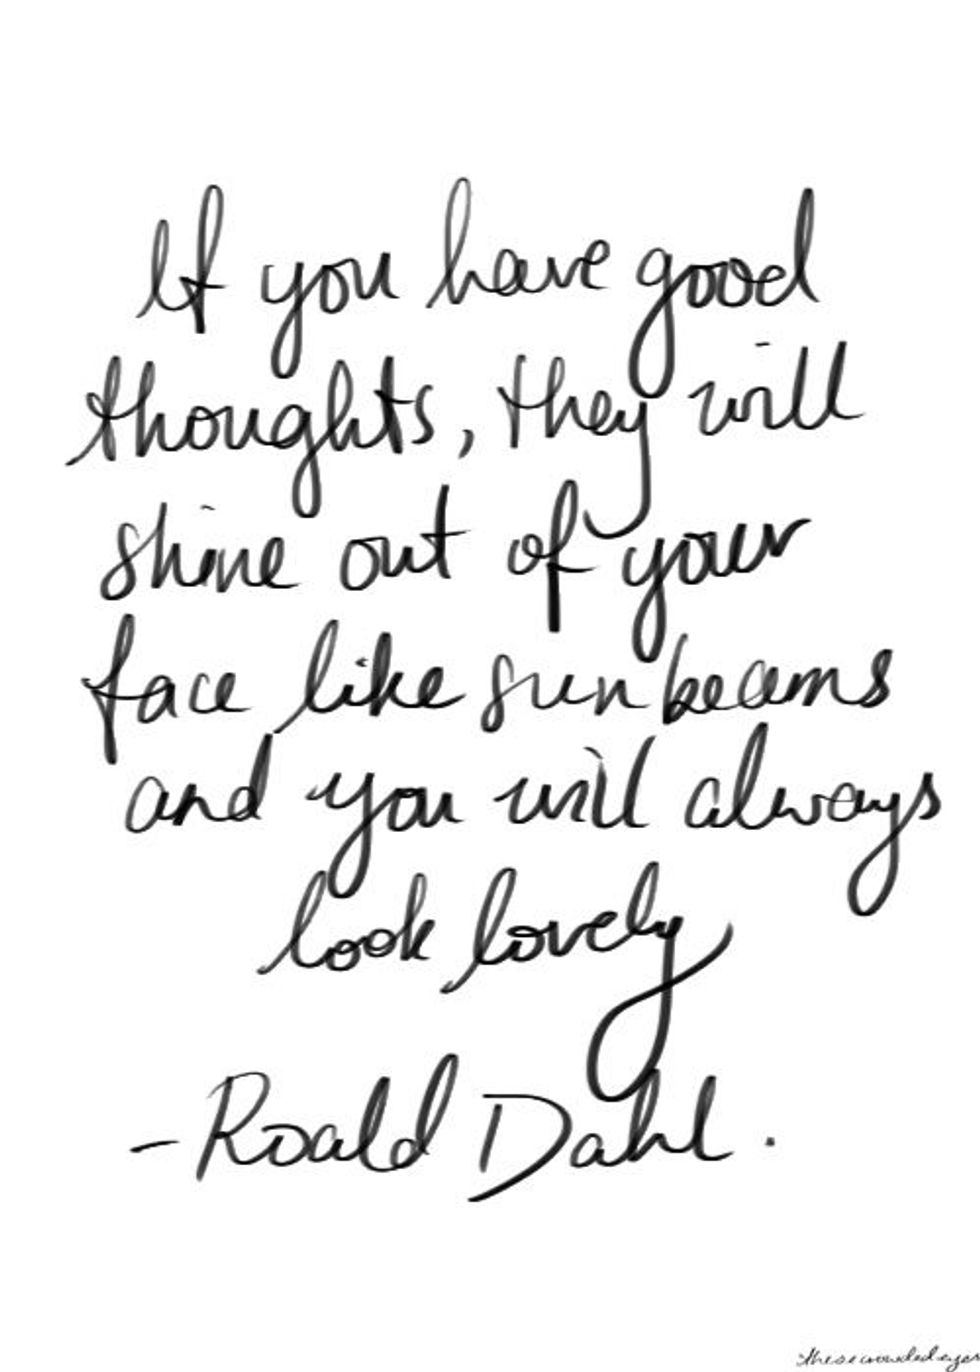 If you have good
thoughts, they will
shine out of your
face like sunbeams
and you will always
look lovely
- Roald Dahl.
thesecrowdedeyes